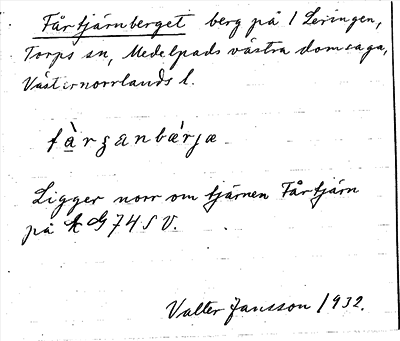 Fårtjärnberget berg på 1 Leringen,
Torps sn, Medelpads västra domsaga,
Västernorrlands l.
Ligger norr om tjärnen Fårtjärn
på
Valter Jansson 1932.